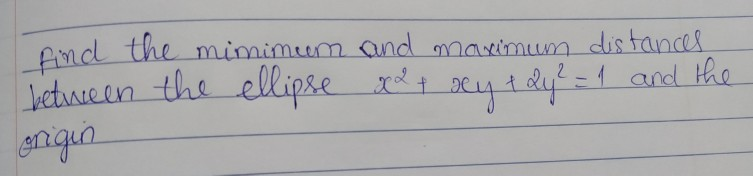 find the minimum and maximum distances
between the ellipse x² + xy + 2y² = 1 and the
origin